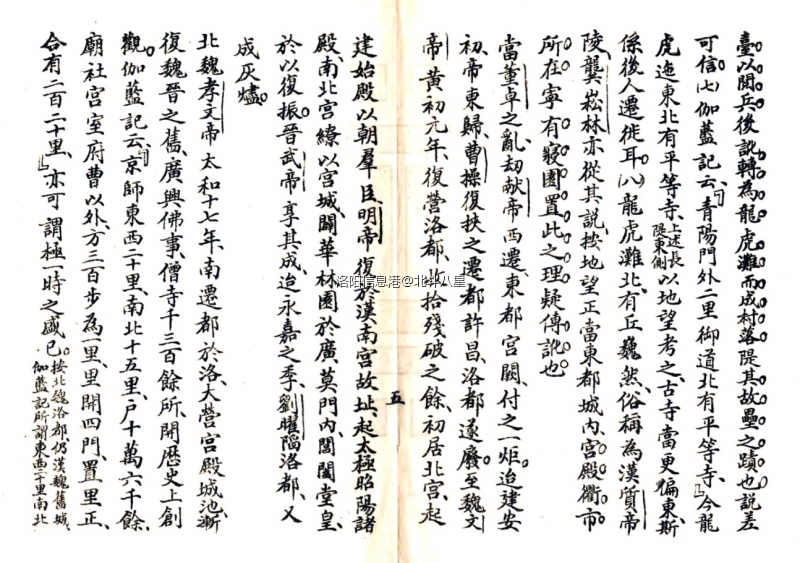 臺以閱兵後訛轉為龍虎灘而成村落隄其故壘之蹟也說差
可信(七)伽藍記云「青陽門外二里御道北有平等寺」今龍
虎迤東北有平等寺上述長隄東側以地望考之古寺當更偏東斯
係後人遷徙耳(八)龍虎灘北有丘巍然俗稱為漢質帝
陵龔崧林亦從其說按地望正當東都城內宮殿衢市
所在寧有寢園置此之理疑傳訛也
當董卓之亂劫獻帝西遷東都宮闕付之一炬迨建安
初帝東歸曹操復挾之遷都許昌洛都遂廢至魏文
帝黃初元年復營洛都收拾殘破之餘初居北宮起
五
建始殿以朝羣臣明帝復於漢南宮故址起太極昭陽諸
殿南北宮繚以宮城闢華林園於廣莫門內閶闔堂皇
於以復振晉武帝享其成迨永嘉之季劉曜陷洛都又
成灰燼
北魏孝文帝太和十七年南遷都於洛大營宮殿城池漸
復魏晉之舊廣興佛事僧寺千三百餘所開歷史上創
觀伽藍記云「京師東西二十里南北十五里戶十萬六千餘
廟社宮室府曹以外方三百步為一里里開四門置里正
合有二百二十里」亦可謂極一時之盛已按北魏洛都仍漢魏舊城伽藍記所謂東西二十里南北
洛阳信息港@北斗八星